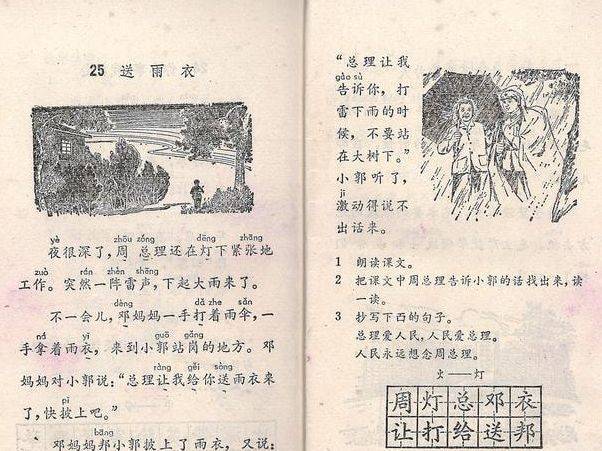 25 送雨衣
yè zhōu zǒng dēng zhāng
夜很深了，周总理还在灯下紧张地
zuò rán zhèn shēng
工作。突然一阵雷声，下起大雨来了。
dèng dǎ zhe sǎn
不一会儿，邓妈妈一手打着雨伞，一
ná yī guō gǎng
手拿着雨衣，来到小郭站岗的地方。邓
ràng gěi sòng
妈妈对小郭说：“总理让我给你送雨衣来
pī
了，快披上吧。”
bāng
邓妈妈邦小郭披上了雨衣，又说：
“总理让我
gào sù
告诉你，打
雷下雨的时
候，不要站
在大树下。”
小郭听了，
jī
激动得说不
出话来。
1 朗读课文。
2 把课文中周总理告诉小郭的话找出来，读
一读。
3 抄写下面的句子。
总理爱人民，人民爱总理。
人民永远想念周总理。
火——灯
周灯总邓衣
让打给送邦